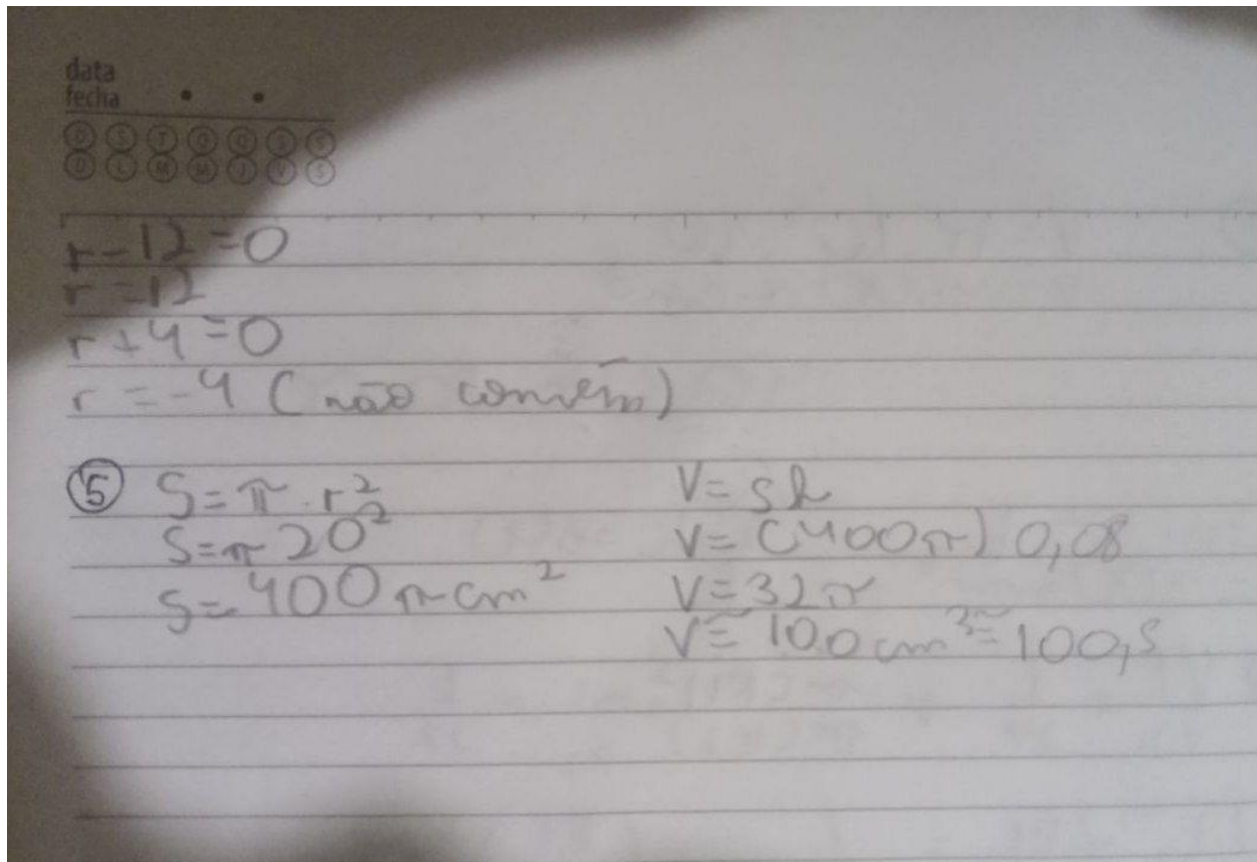 data
fecha
D S T Q Q S S
D L M M J V S
r-12=0
r=12
r+4=0
r=-4 (não convém)
5 S=π.r²
S=π20²
S=400πcm²
V=sh
V=(400π)0,08
V=32π
V≅100cm³≅100,5